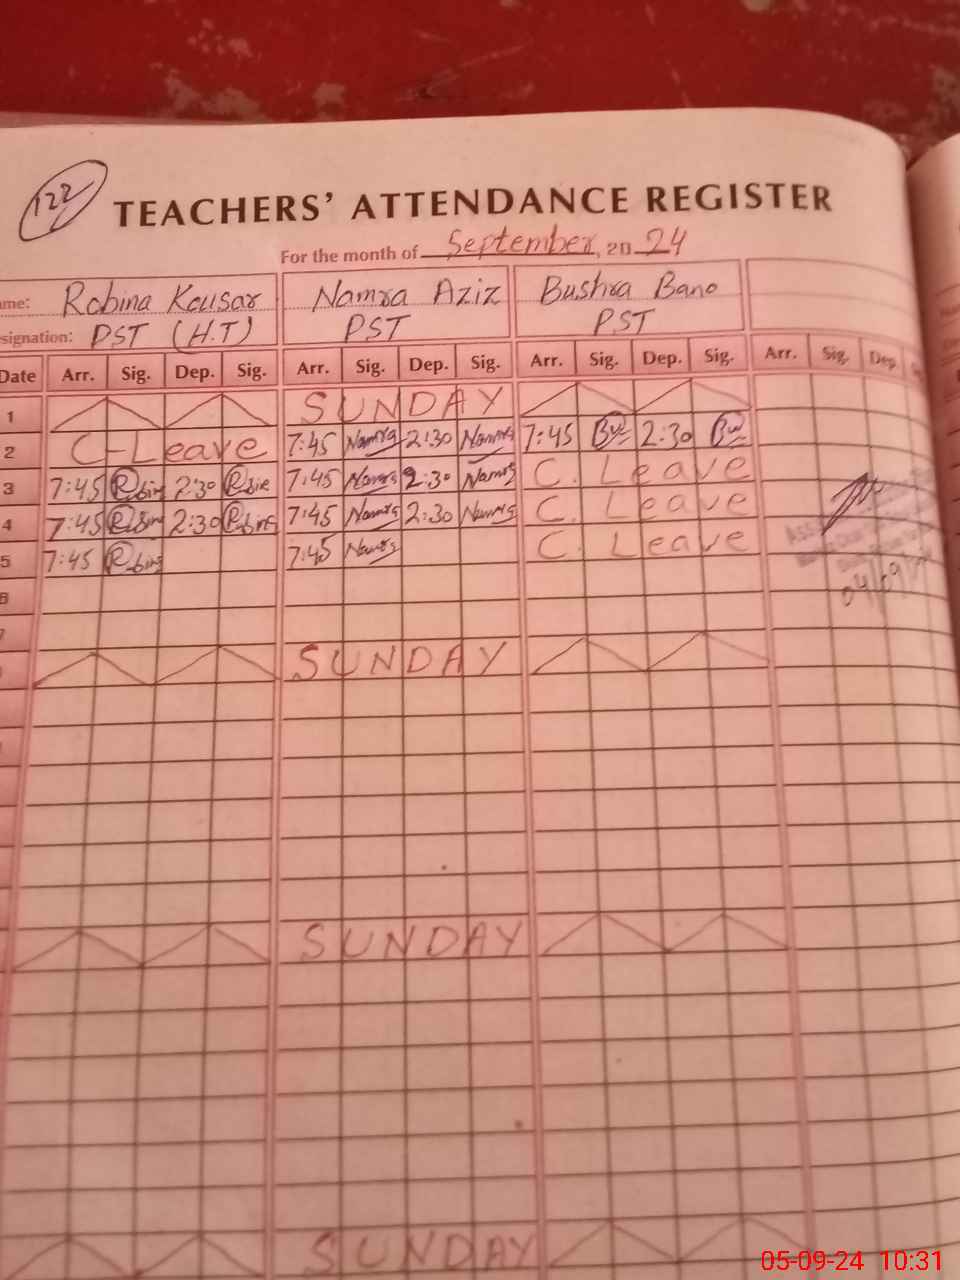 122
TEACHERS' ATTENDANCE REGISTER
For the month of September, 20 24
ame: Robina Kousar Namra Aziz Bushra Bano
signation: PST (H.T) PST PST
Date Arr. Sig. Dep. Sig. Arr. Sig. Dep. Sig. Arr. Sig. Dep. Sig. Arr. Sig. Dep.
1 SUNDAY
2 C-Leave 7:45 Namra 2:30 Namra 7:45 2:30
3 7:45 Robina 2:30 7:45 Namra 2:30 Namra C. Leave
4 7:45 Robina 2:30 Robina 7:45 Namra 2:30 Namra C. Leave
5 7:45 Robina 7:45 Namra C. Leave
04/09/
6
7
SUNDAY
SUNDAY
SUNDAY
05-09-24 10:31